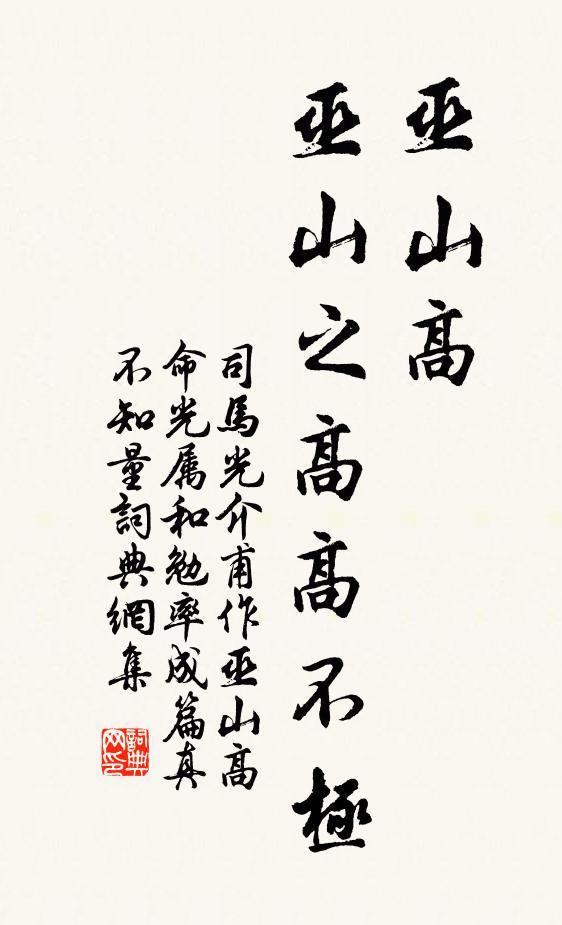 巫山高
巫山之高高不極
司馬光介甫作巫山高
命光属和勉率成篇真
不知量詞典網集
詞典
网印